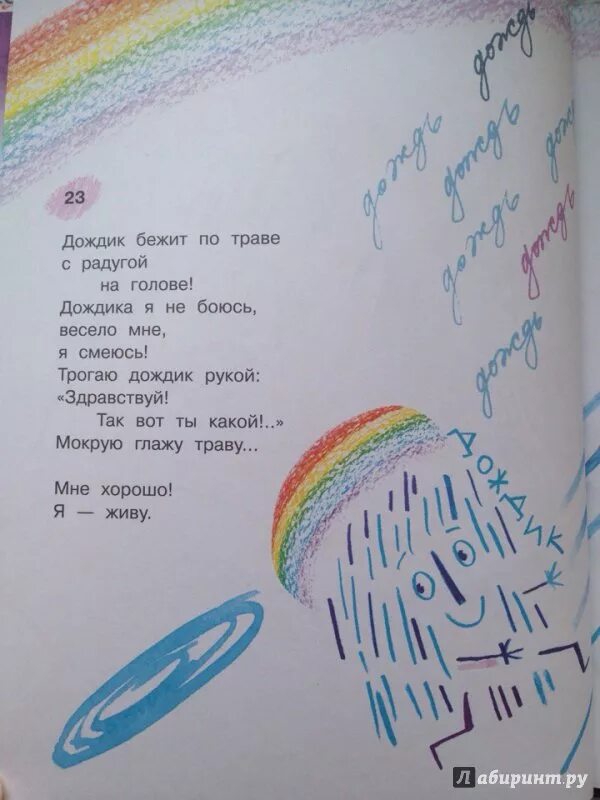 дождь
дождь
дождь
дождь
дождь
дождь
дождь
23
Дождик бежит по траве
с радугой
на голове!
Дождика я не боюсь,
весело мне,
я смеюсь!
Трогаю дождик рукой:
«Здравствуй!
Так вот ты какой!..»
Мокрую глажу траву...
Мне хорошо!
Я — живу.
дождик
Лабиринт.ру